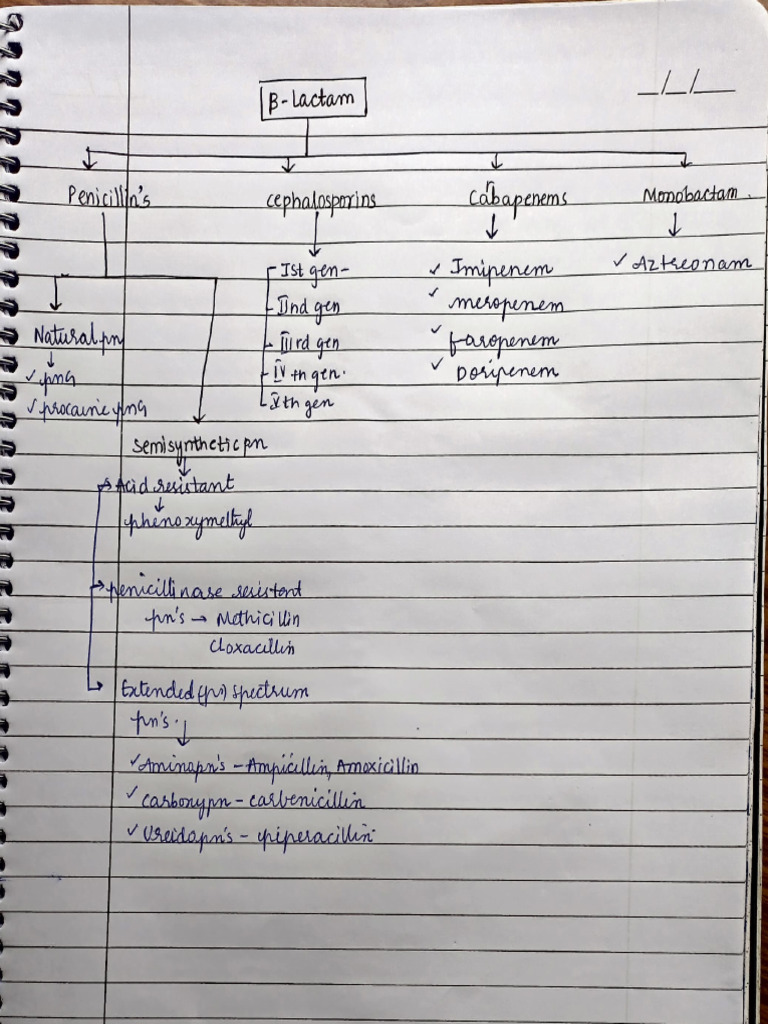 β-Lactam
_/_/__
Penicillin's cephalosporins Carbapenems Monobactam.
Ist gen- ✓ Imipenem ✓ Aztreonam
IInd gen ✓ meropenem
Natural pn IIIrd gen ✓ faropenem
✓ pnG IVth gen. ✓ Doripenem
✓ procaine pnG Vth gen
semisynthetic pn
Acid resistant
phenoxymethyl
penicillinase resistant
pn's → Methicillin
Cloxacillin
Extended (pn) spectrum
pn's.
✓ Aminopn's - Ampicillin, Amoxicillin
✓ carboxypn - carbenicillin
✓ Ureidopn's - piperacillin